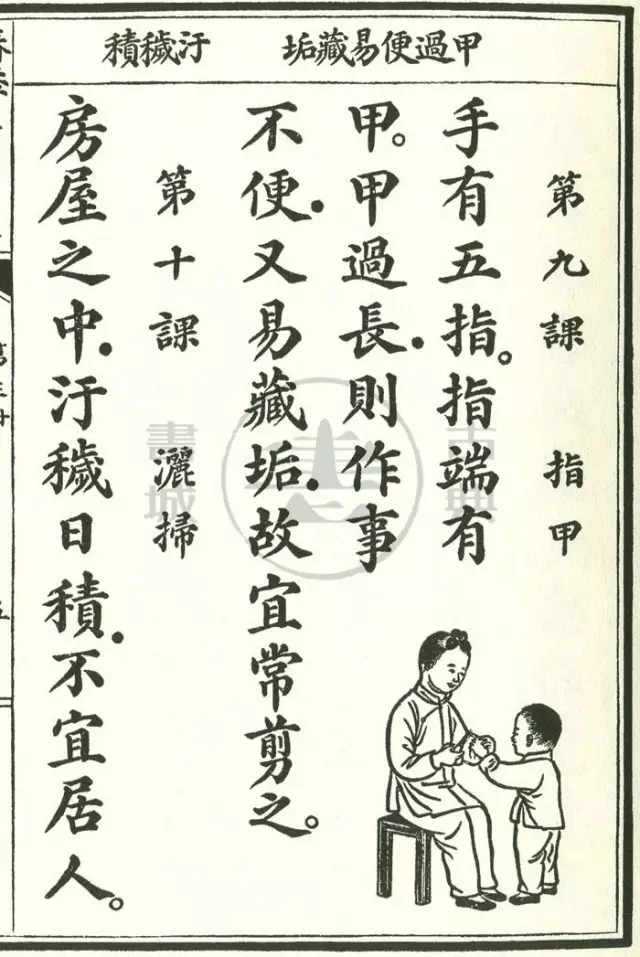 甲過便易藏垢
汙穢積
第九課　指甲
手有五指。指端有
甲。甲過長．則作事
不便．又易藏垢．故宜常剪之。
第十課　灑掃
房屋之中．汙穢日積．不宜居人。
古典書城